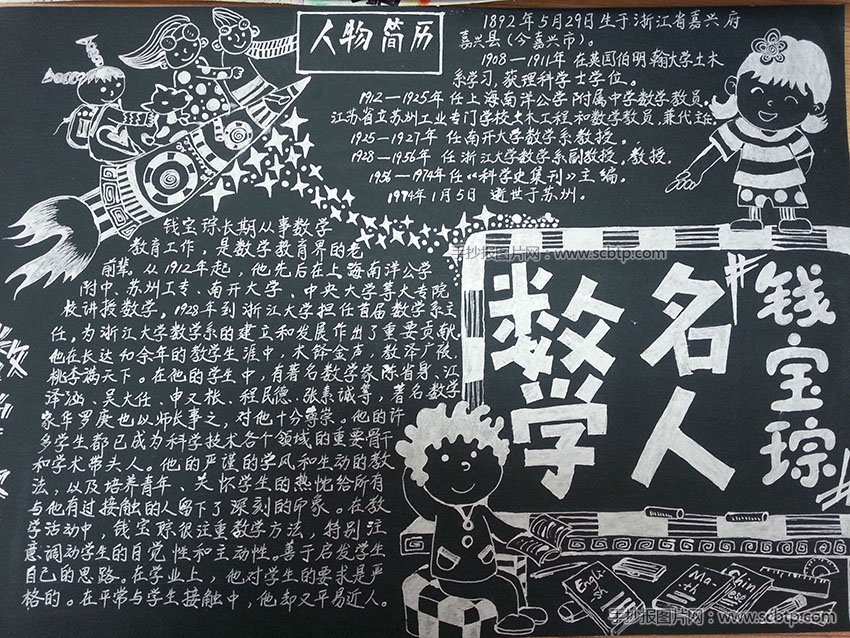 人物简历
1892年5月29日生于浙江省嘉兴府
嘉兴县(今嘉兴市)。
1908—1911年 在英国伯明翰大学土木
系学习,获理科学士学位。
1912—1925年 任上海南洋公学附属中学数学教员,
江苏省立苏州工业专门学校土木工程和数学教员,兼代主任
1925—1927年 任南开大学数学系教授。
1928—1956年 任浙江大学数学系副教授,教授。
1956—1974年任《科学史集刊》主编。
1974年1月5日 逝世于苏州。
手抄报图片网:www.scbtp.com
钱宝琮长期从事数学
教育工作,是数学教育界的老
前辈。从1912年起,他先后在上海南洋公学
附中、苏州工专、南开大学、中央大学等大专院
校讲授数学,1928年到浙江大学担任首届数学系主
任,为浙江大学数学系的建立和发展作出了重要贡献。
他在长达40余年的教学生涯中,木铎金声,教泽广被,
桃李满天下。在他的学生中,有著名数学家陈省身、江
泽涵、吴大任、申又枨、程民德、张素诚等,著名数学
家华罗庚也以师长事之,对他十分尊崇。他的许
多学生都已成为科学技术各个领域的重要骨干
和学术带头人。他的严谨的学风和生动的教
法,以及培养青年、关怀学生的热忱给所有
与他有过接触的人留下了深刻的印象。在教
学活动中,钱宝琮很注重教学方法,特别注
意调动学生的自觉性和主动性。善于启发学生
自己的思路。在学业上,他对学生的要求是严
格的。在平常与学生接触中,他却又平易近人。
数学
名人
钱宝琮
English
Math
Chinese
手抄报图片网:www.scbtp.com